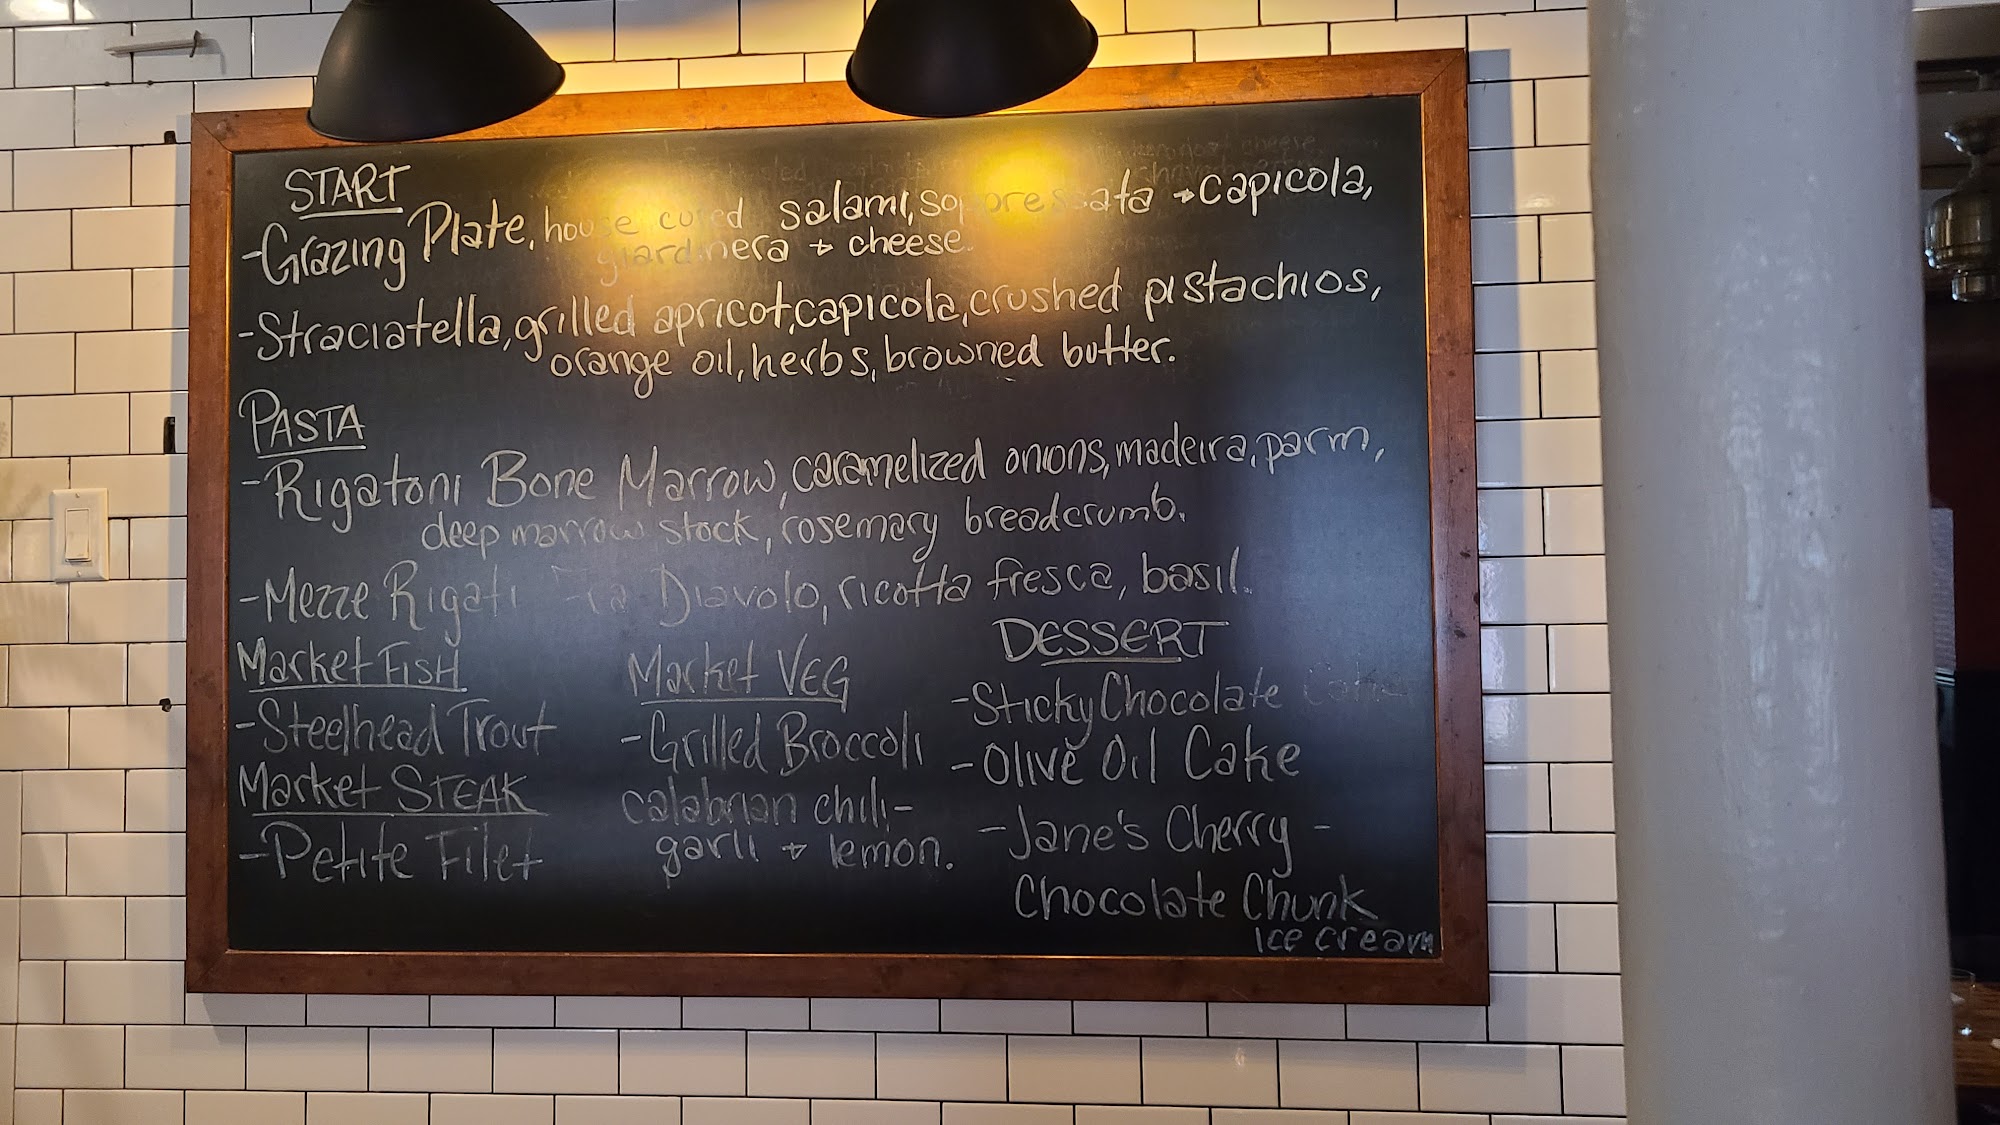 START
-Grazing Plate, house cured salami, soppressata + capicola,
giardinera + cheese.
-Straciatella, grilled apricot, capicola, crushed pistachios,
orange oil, herbs, browned butter.
PASTA
-Rigatoni Bone Marrow, caramelized onions, madeira, parm,
deep marrow stock, rosemary breadcrumb.
-Mezze Rigati Fra Diavolo, ricotta fresca, basil.
MARKET FISH
-Steelhead Trout
MARKET STEAK
-Petite Filet
MARKET VEG
-Grilled Broccoli
calabrian chili-
garli + lemon.
DESSERT
-Sticky Chocolate
-Olive Oil Cake
-Jane's Cherry -
Chocolate Chunk
Ice cream